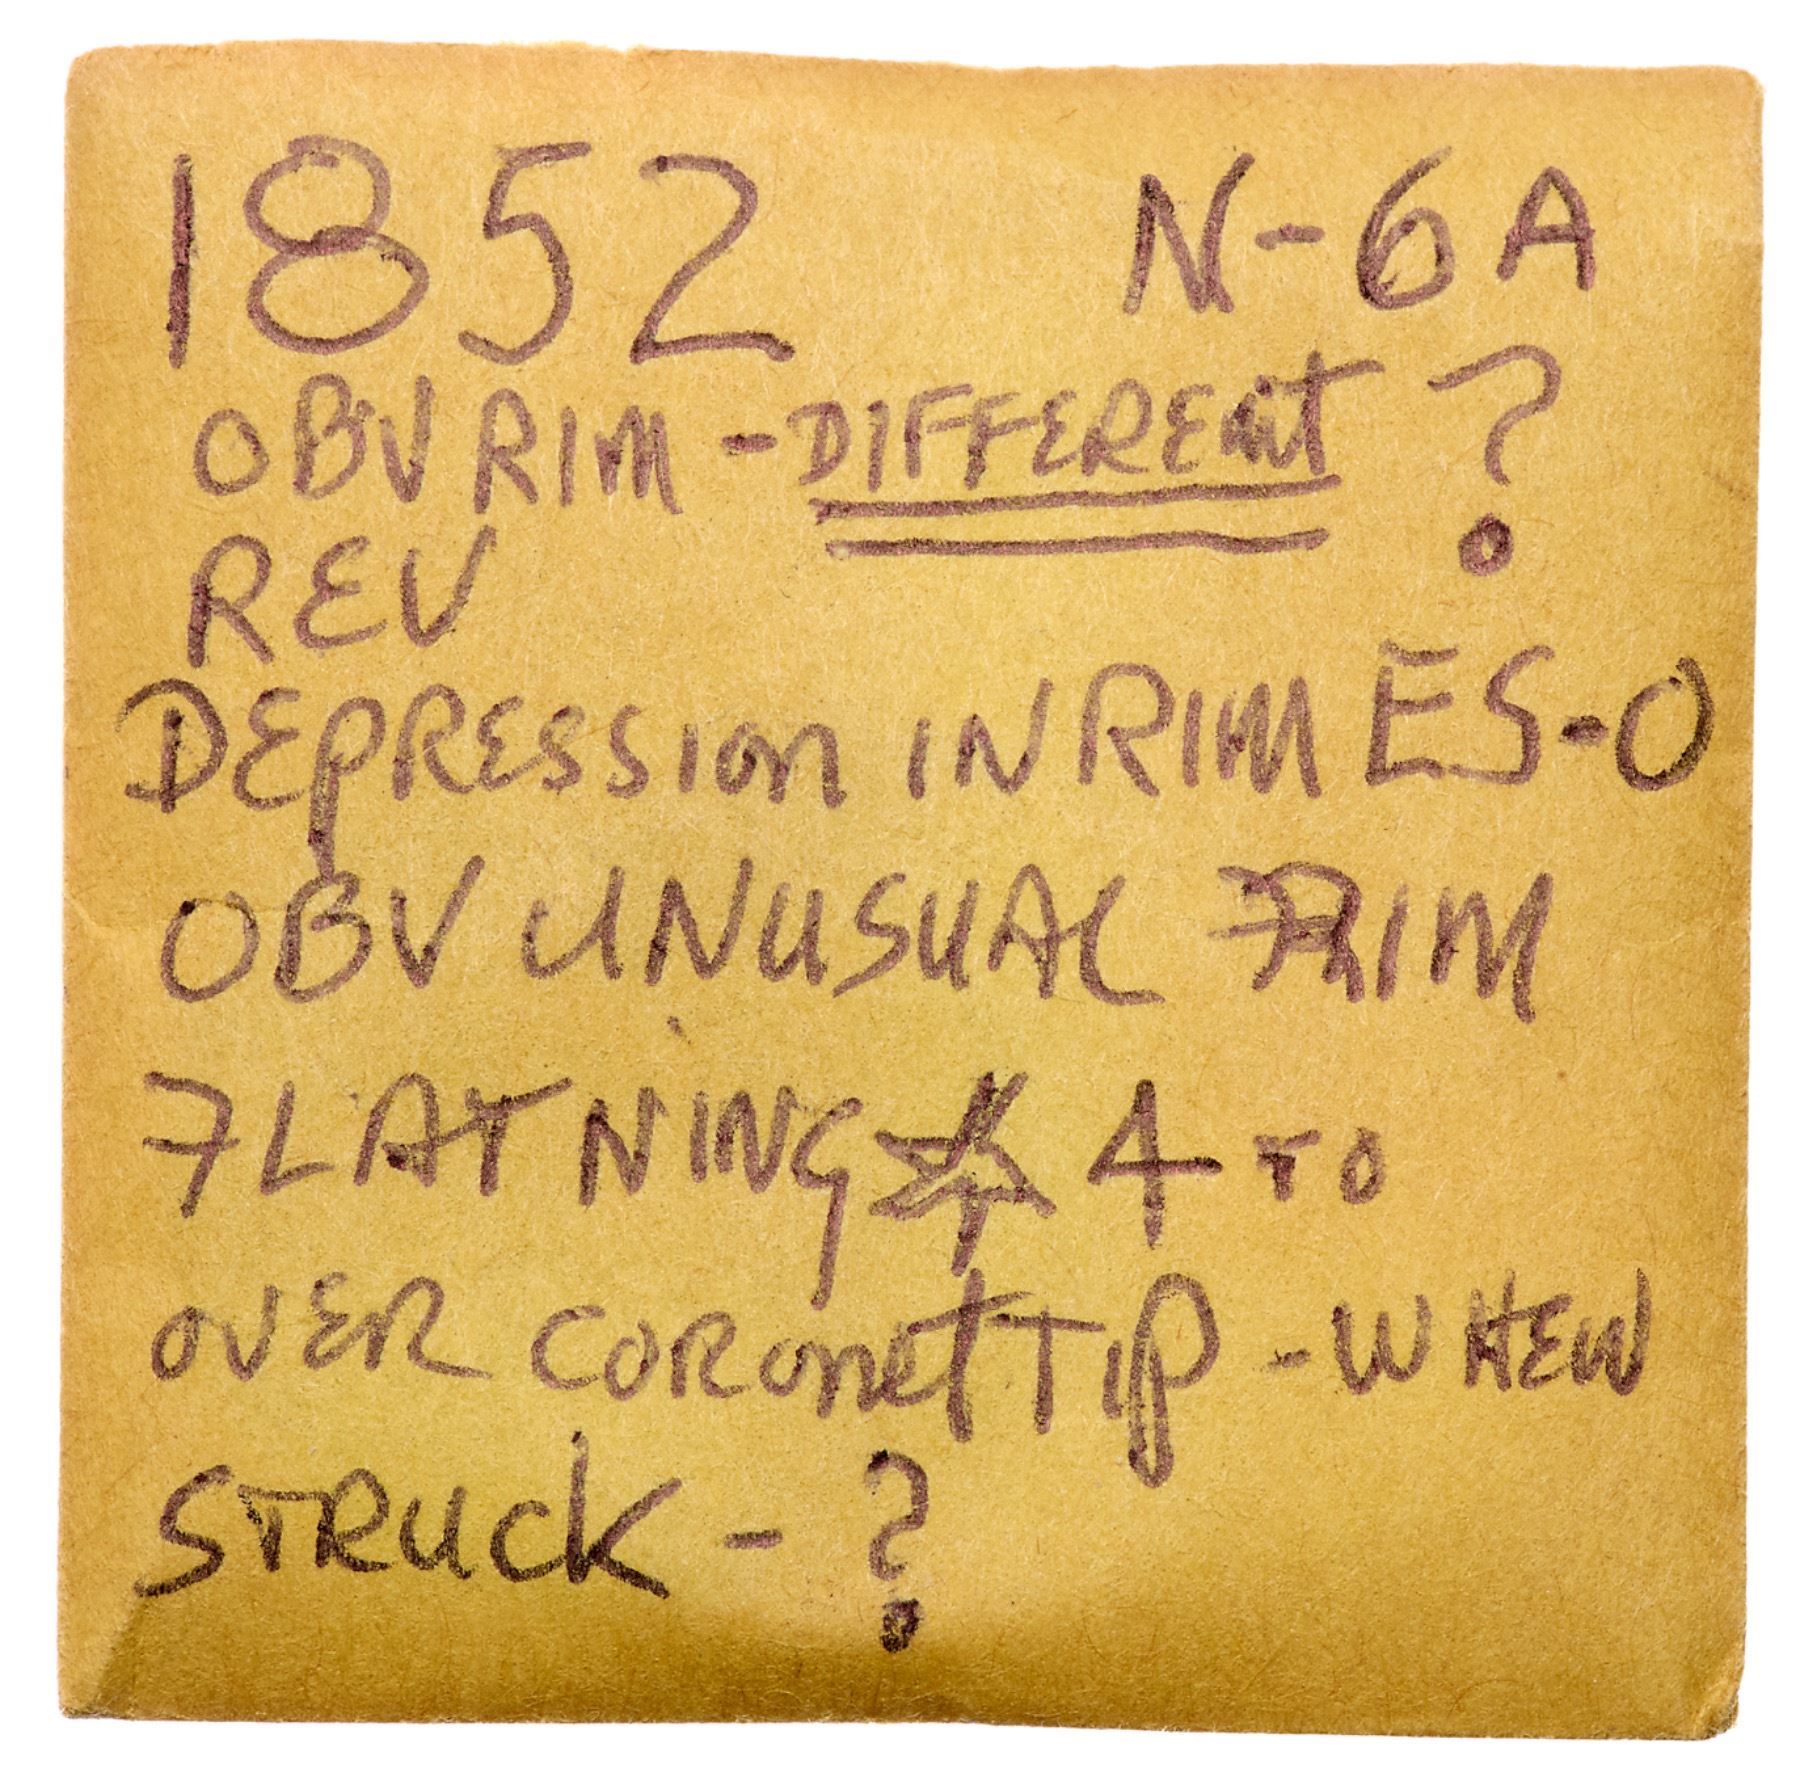 1852 N-6A
OBV RIM - DIFFERENT ?
REV
DEPRESSION IN RIM ES-O
OBV UNUSUAL RIM
FLATNING ☆ 4 TO
OVER CORONET TIP - WHEN
STRUCK - ?